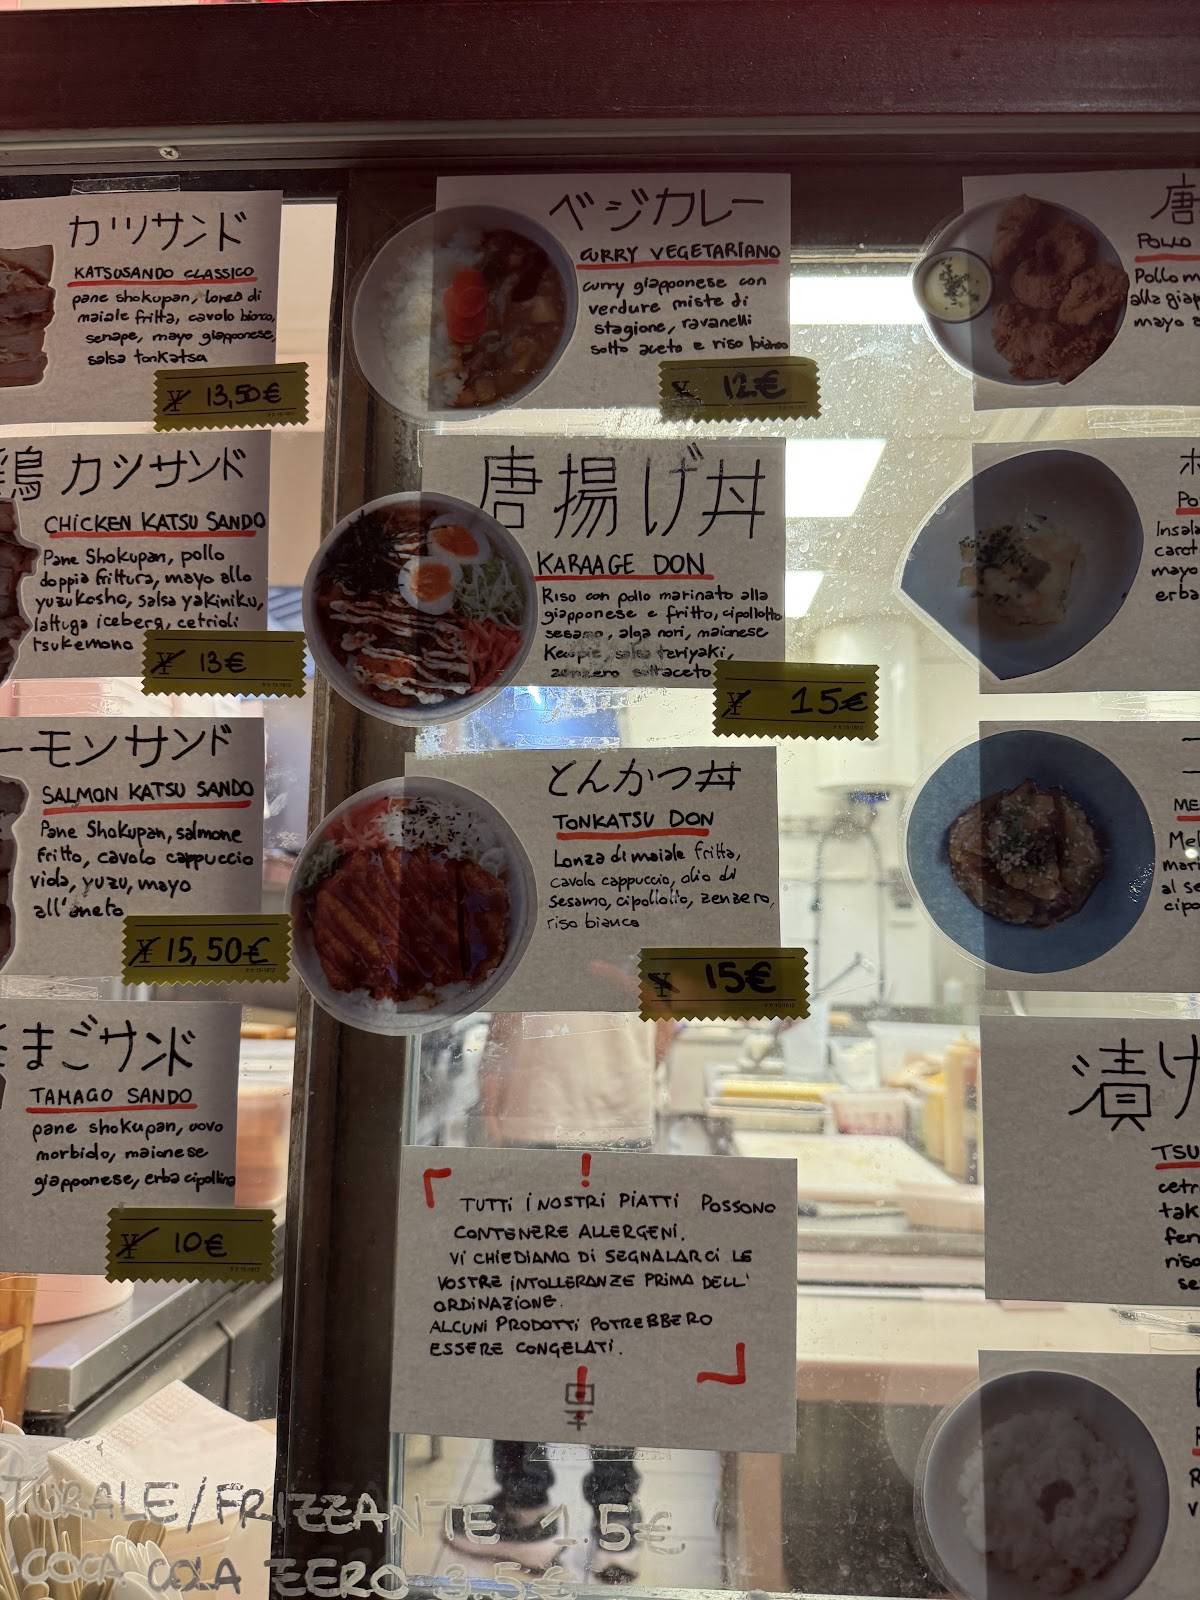 カツサンド
KATSUSANDO CLASSICO
pane shokupan, lonza di
maiale fritta, cavolo bianco,
senape, mayo giapponese,
salsa tonkatsu
¥ 13,50€
鶏カツサンド
CHICKEN KATSU SANDO
Pane Shokupan, pollo
doppia frittura, mayo allo
yuzukosho, salsa yakiniku,
lattuga iceberg, cetrioli
tsukemono
¥ 13€
ーモンサンド
SALMON KATSU SANDO
Pane Shokupan, salmone
fritto, cavolo cappuccio
viola, yuzu, mayo
all'aneto
¥ 15,50€
たまごサンド
TAMAGO SANDO
pane shokupan, uovo
morbido, maionese
giapponese, erba cipollina
¥ 10€
ベジカレー
CURRY VEGETARIANO
curry giapponese con
verdure miste di
stagione, ravanelli
sotto aceto e riso bianco
¥ 12€
唐揚げ丼
KARAAGE DON
Riso con pollo marinato alla
giapponese e fritto, cipollotto
sesamo, alga nori, maionese
Kewpie, salsa teriyaki,
zenzero sottaceto
¥ 15€
とんかつ丼
TONKATSU DON
Lonza di maiale fritta,
cavolo cappuccio, olio di
sesamo, cipollotto, zenzero,
riso bianco
¥ 15€
! TUTTI I NOSTRI PIATTI POSSONO
CONTENERE ALLERGENI.
VI CHIEDIAMO DI SEGNALARCI LE
VOSTRE INTOLLERANZE PRIMA DELL'
ORDINAZIONE.
ALCUNI PRODOTTI POTREBBERO
ESSERE CONGELATI.
!
唐
POLLO
Pollo m
alla giap
mayo a
ポ
Po
Insala
carot
mayo
erba
ME
Mel
mari
al se
cipo
漬け
TSU
cetr
tak
fen
riso
se
R
V
TURALE/FRIZZANTE 1.5€
COCA COLA ZERO 3.5€